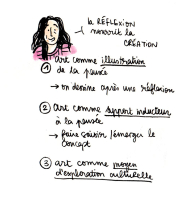 la RÉFLEXION
nourrit la
CRÉATION
① art comme illustration
de la pensée
→ on dessine après une réflexion
② Art comme support inducteur
à la pensée
→ faire saisir / émerger le
concept
③ art comme moyen
d'exploration culturelle